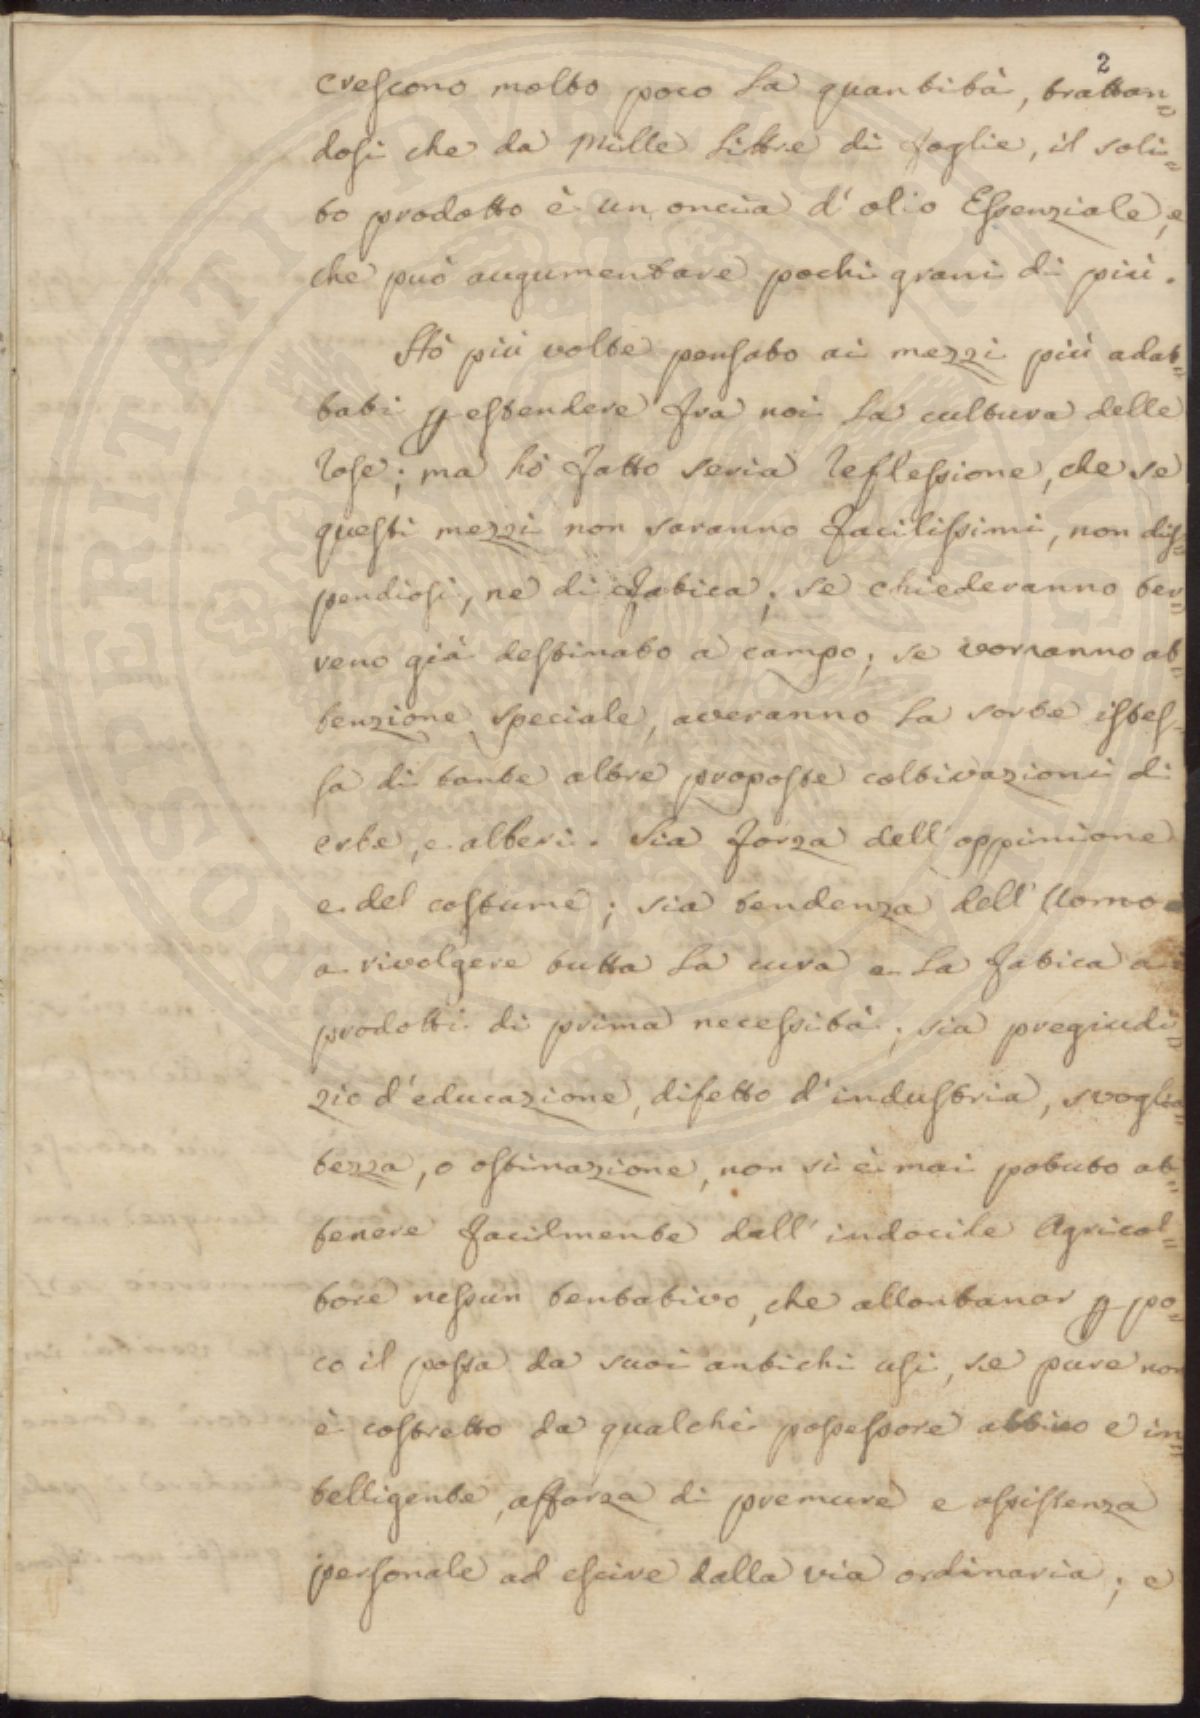 2
crescono molto poco la quantità, trattan=
dosi che da Mille Littre di foglie, il soli=
to prodotto è un oncia d'olio Essenziale, e
che può augumentare pochi grani di più.
Hò più volte pensato ai mezzi più adat=
tati p estendere fra noi la cultura delle
rose; ma hò fatto seria reflessione, che se
questi mezzi non saranno facilissimi, non dis=
pendiosi, ne di fatica; se chiederanno ter=
reno già destinato a campo; se vorranno at=
tenzione speciale, averanno la sorte istes=
sa di tante altre proposte coltivazioni di
erbe, e alberi. Sia forza dell'oppinione
e del costume; sia tendenza dell'Uomo
a rivolgere tutta la cura e la fatica ai
prodotti di prima necessità; sia pregiudi=
zio d'educazione, difetto d'industria, svoglia=
tezza, o ostinazione, non si è mai potuto ot=
tenere facilmente dall'indocile Agricol=
tore nessun tentativo, che allontanar p po=
co il possa da suoi antichi usi, se pure non
è costretto da qualche possessore attivo e in=
telligente, afforza di premure e assistenza
personale ad escire dalla via ordinaria; e
PROSPERITATI PUBLICAE AUGENDAE